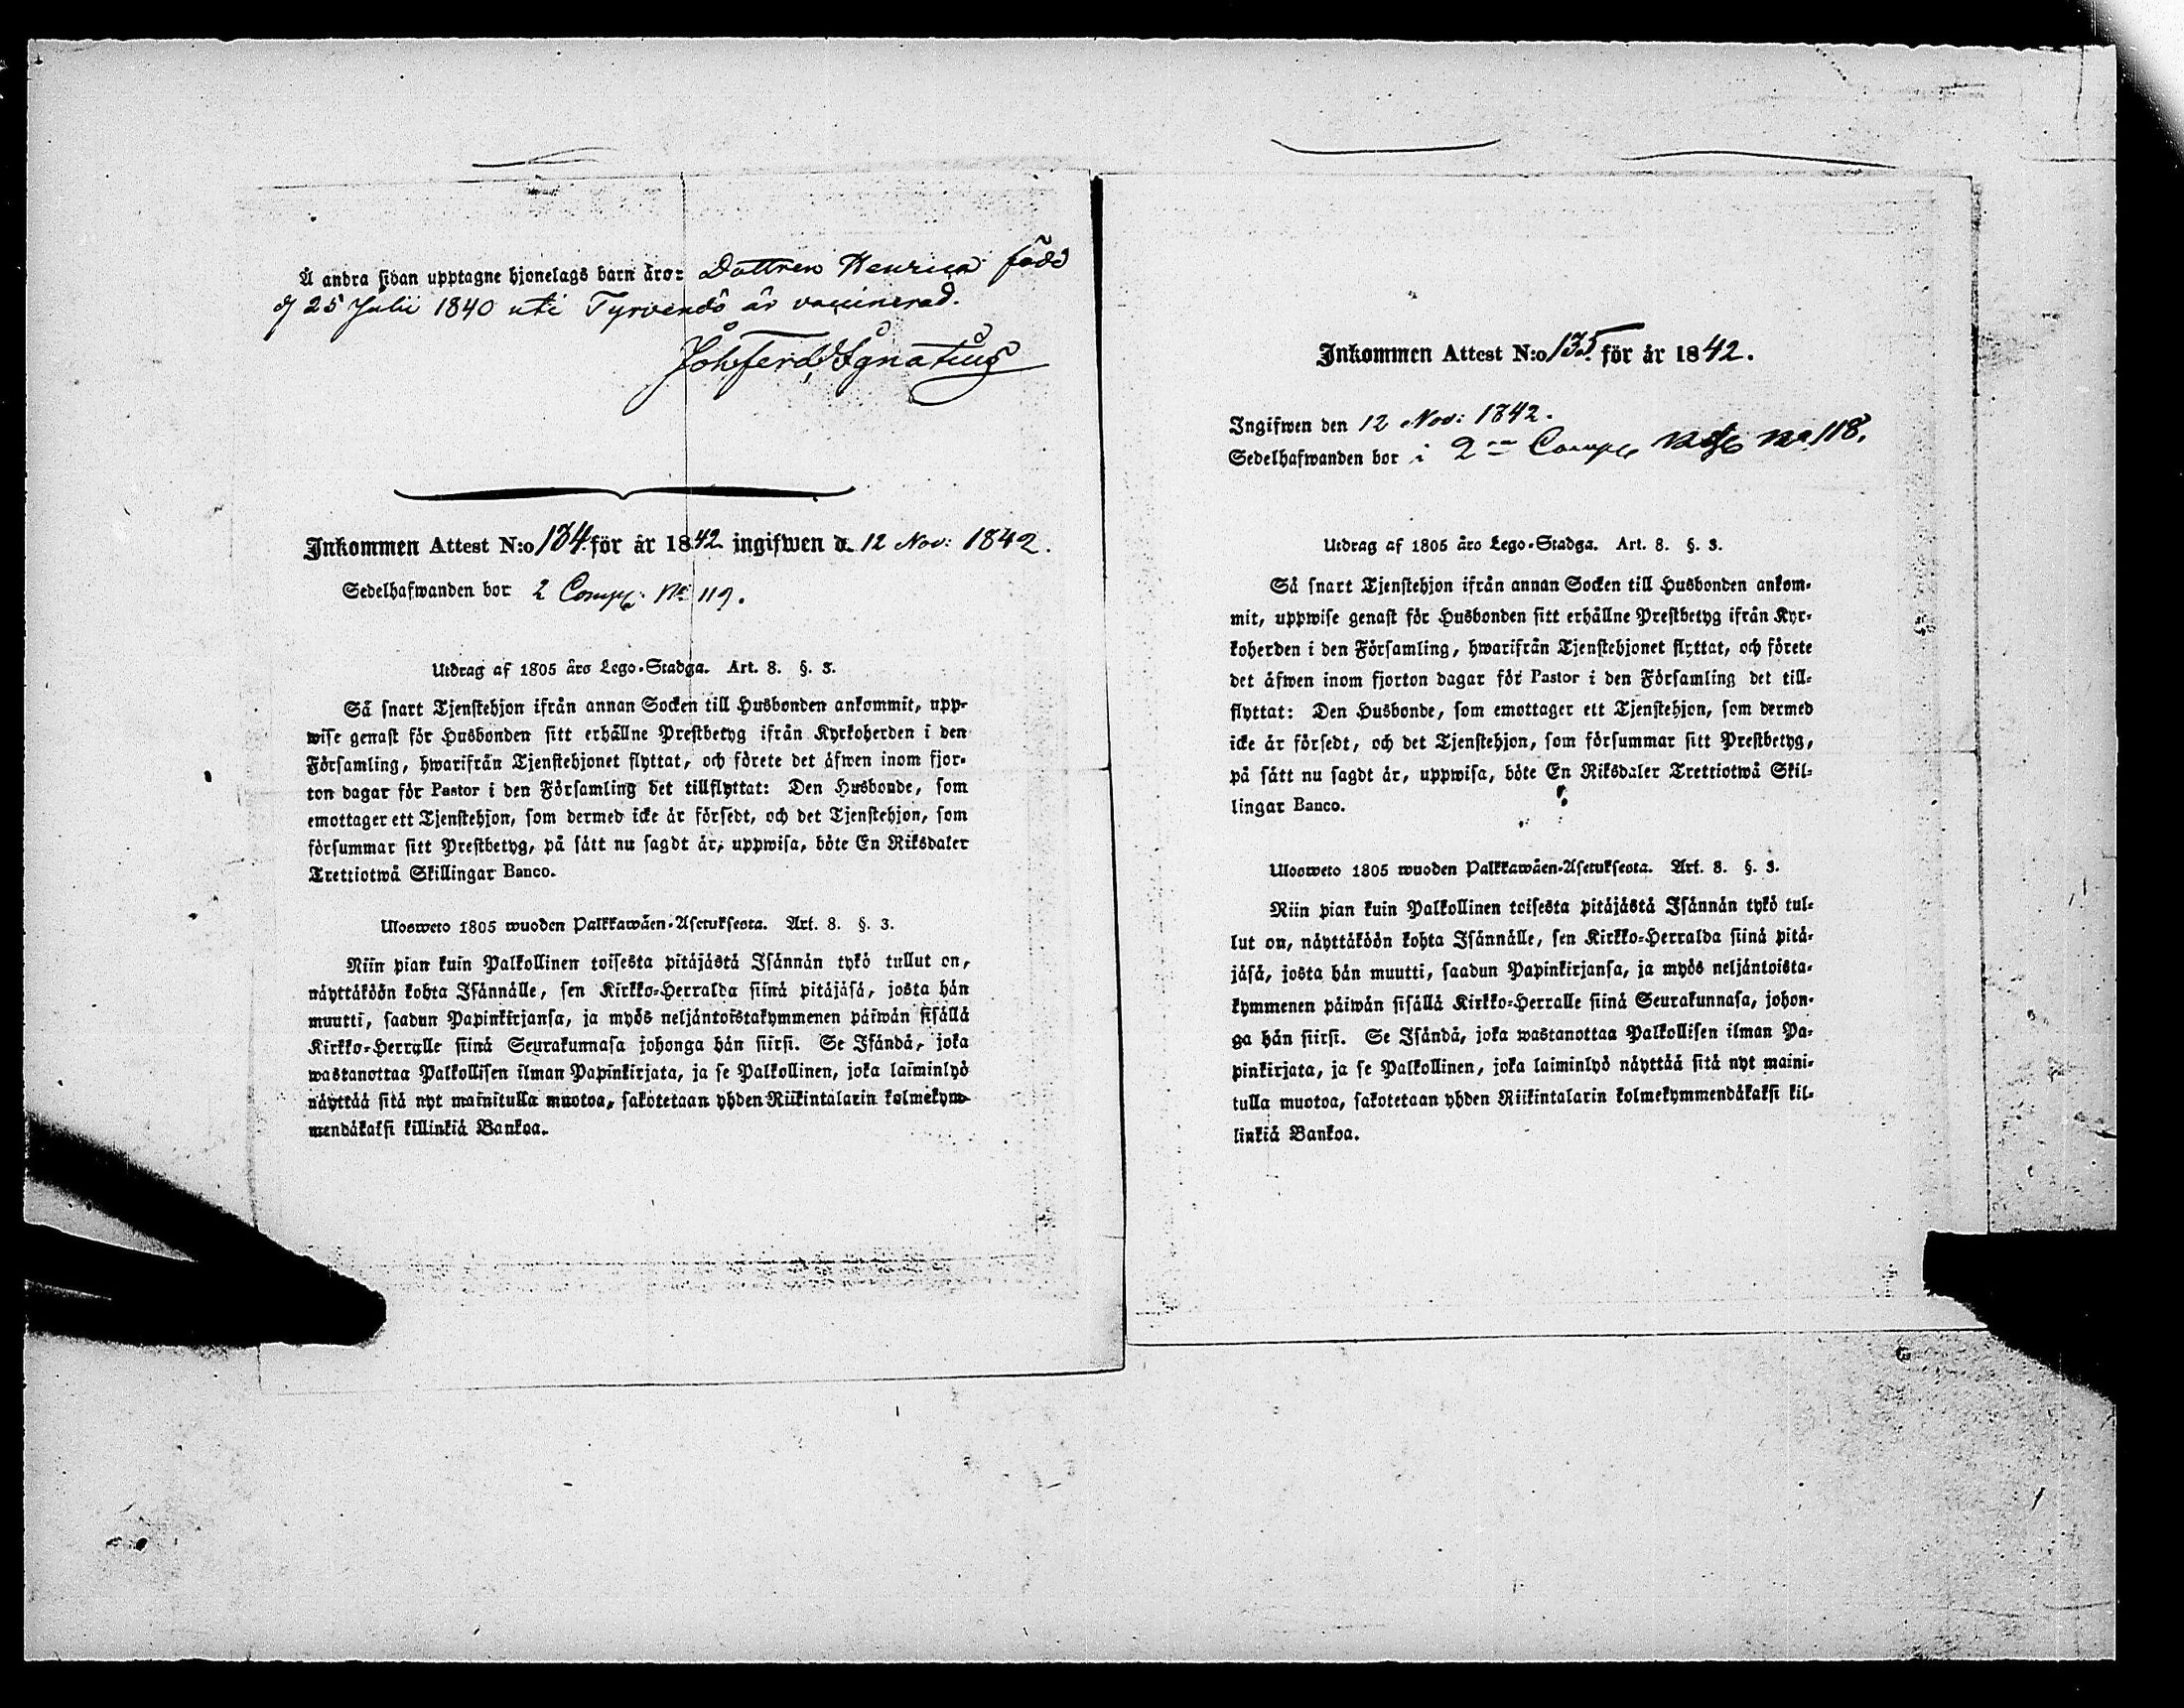 Å andra sidan upptagne hjonelags barn äro: Dottren Henrica född
d 25 Julii 1840 uti Tyrvendö är vaccinerad.
Joh Ferd Ignatius
Inkommen Attest N:o 134. för år 1842 ingifwen d. 12 Nov: 1842.
Sedelhafwanden bor 2 Comp: No 119.
Utdrag af 1805 års Lego-Stadga. Art. 8. §. 3.
Så snart Tjenstehjon ifrån annan Socken till Husbonden ankommit, upp-
wise genast för Husbonden sitt erhållne Prestbetyg ifrån Kyrkoherden i den
Församling, hwarifrån Tjenstehjonet flyttat, och förete det äfwen inom fjor-
ton dagar för Pastor i den Församling det tillflyttat: Den Husbonde, som
emottager ett Tjenstehjon, som dermed icke är försedt, och det Tjenstehjon, som
försummar sitt Prestbetyg, på sätt nu sagdt är, uppwisa, böte En Riksdaler
Trettiotwå Skillingar Banco.
Uloswero 1805 wuoden Palkkawäen-Asetuksesta. Art. 8. §. 3.
Niin pian kuin Palkollinen toisesta pitäjästä Isännän tykö tullut on,
näyttäköön kohta Isännälle, sen Kirkko-Herralda siinä pitäjäsä, josta hän
muutti, saadun Papinkirjansa, ja myös neljäntoistakymmenen päiwän sisällä
Kirkko-Herralle siinä Seurakunnasa johonga hän siirsi. Se Isändä, joka
wastanottaa Palkollisen ilman Papinkirjata, ja se Palkollinen, joka laiminlyö
näyttää sitä nyt mainitulla muotoa, sakotetaan yhden Riikintalarin kolmekym-
mendäkaksi killinkiä Bankoa.
Inkommen Attest N:o 135. för år 1842.
Ingifwen den 12 Nov: 1842.
Sedelhafwanden bor i 2 Comp No 118.
Utdrag af 1805 års Lego-Stadga. Art. 8. §. 3.
Så snart Tjenstehjon ifrån annan Socken till Husbonden ankom-
mit, uppwise genast för Husbonden sitt erhållne Prestbetyg ifrån Kyr-
koherden i den Församling, hwarifrån Tjenstehjonet flyttat, och förete
det äfwen inom fjorton dagar för Pastor i den Församling det till-
flyttat: Den Husbonde, som emottager ett Tjenstehjon, som dermed
icke är försedt, och det Tjenstehjon, som försummar sitt Prestbetyg,
på sätt nu sagdt är, uppwisa, böte En Riksdaler Trettiotwå Skil-
lingar Banco.
Uloswero 1805 wuoden Palkkawäen-Asetuksesta. Art. 8. §. 3.
Niin pian kuin Palkollinen toisesta pitäjästä Isännän tykö tul-
lut on, näyttäköön kohta Isännälle, sen Kirkko-Herralda siinä pitä-
jäsä, josta hän muutti, saadun Papinkirjansa, ja myös neljäntoista-
kymmenen päiwän sisällä Kirkko-Herralle siinä Seurakunnasa, johon-
ga hän siirsi. Se Isändä, joka wastanottaa Palkollisen ilman Pa-
pinkirjata, ja se Palkollinen, joka laiminlyö näyttää sitä nyt maini-
tulla muotoa, sakotetaan yhden Riikintalarin kolmekymmendäkaksi kil-
linkiä Bankoa.